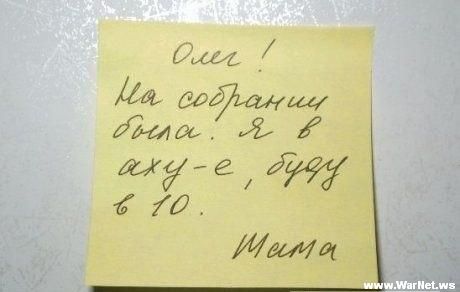 Олег!
На собрании
была. Я в
аху-е, буду
в 10.
Мама
www.WarNet.ws